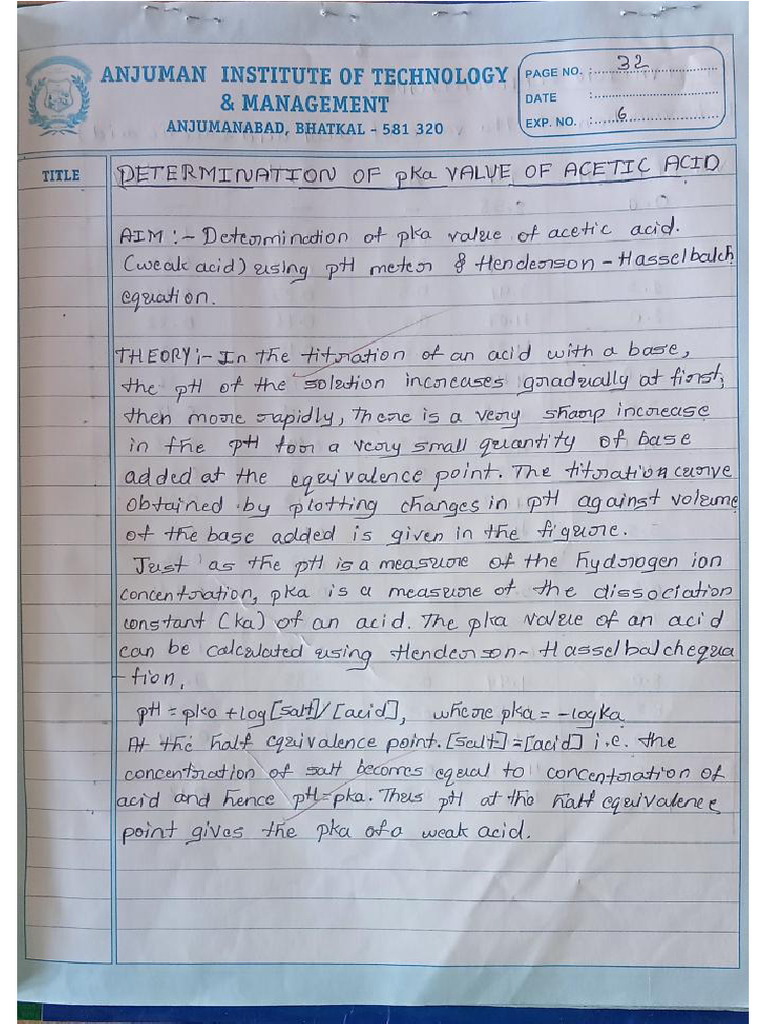 ANJUMAN INSTITUTE OF TECHNOLOGY
& MANAGEMENT
ANJUMANABAD, BHATKAL - 581 320
PAGE NO. : 32
DATE :
EXP. NO. : 6
TITLE
DETERMINATION OF pka VALUE OF ACETIC ACID
AIM :- Determination of pka value of acetic acid.
(weak acid) using pH meter & Henderson - Hasselbalch
equation.
THEORY :- In the titration of an acid with a base,
the pH of the solution increases gradually at first,
then more rapidly, there is a very sharp increase
in the pH for a very small quantity of base
added at the equivalence point. The titration curve
obtained by plotting changes in pH against volume
of the base added is given in the figure.
Just as the pH is a measure of the hydrogen ion
concentration, pka is a measure of the dissociation
constant (ka) of an acid. The pka value of an acid
can be calculated using Henderson - Hasselbalchequa
-tion,
pH = pka + log [salt] / [acid], where pka = -log Ka
At the half equivalence point. [salt] = [acid] i.e. the
concentration of salt becomes equal to concentration of
acid and hence pH = pka. Thus pH at the half equivalence
point gives the pka of a weak acid.